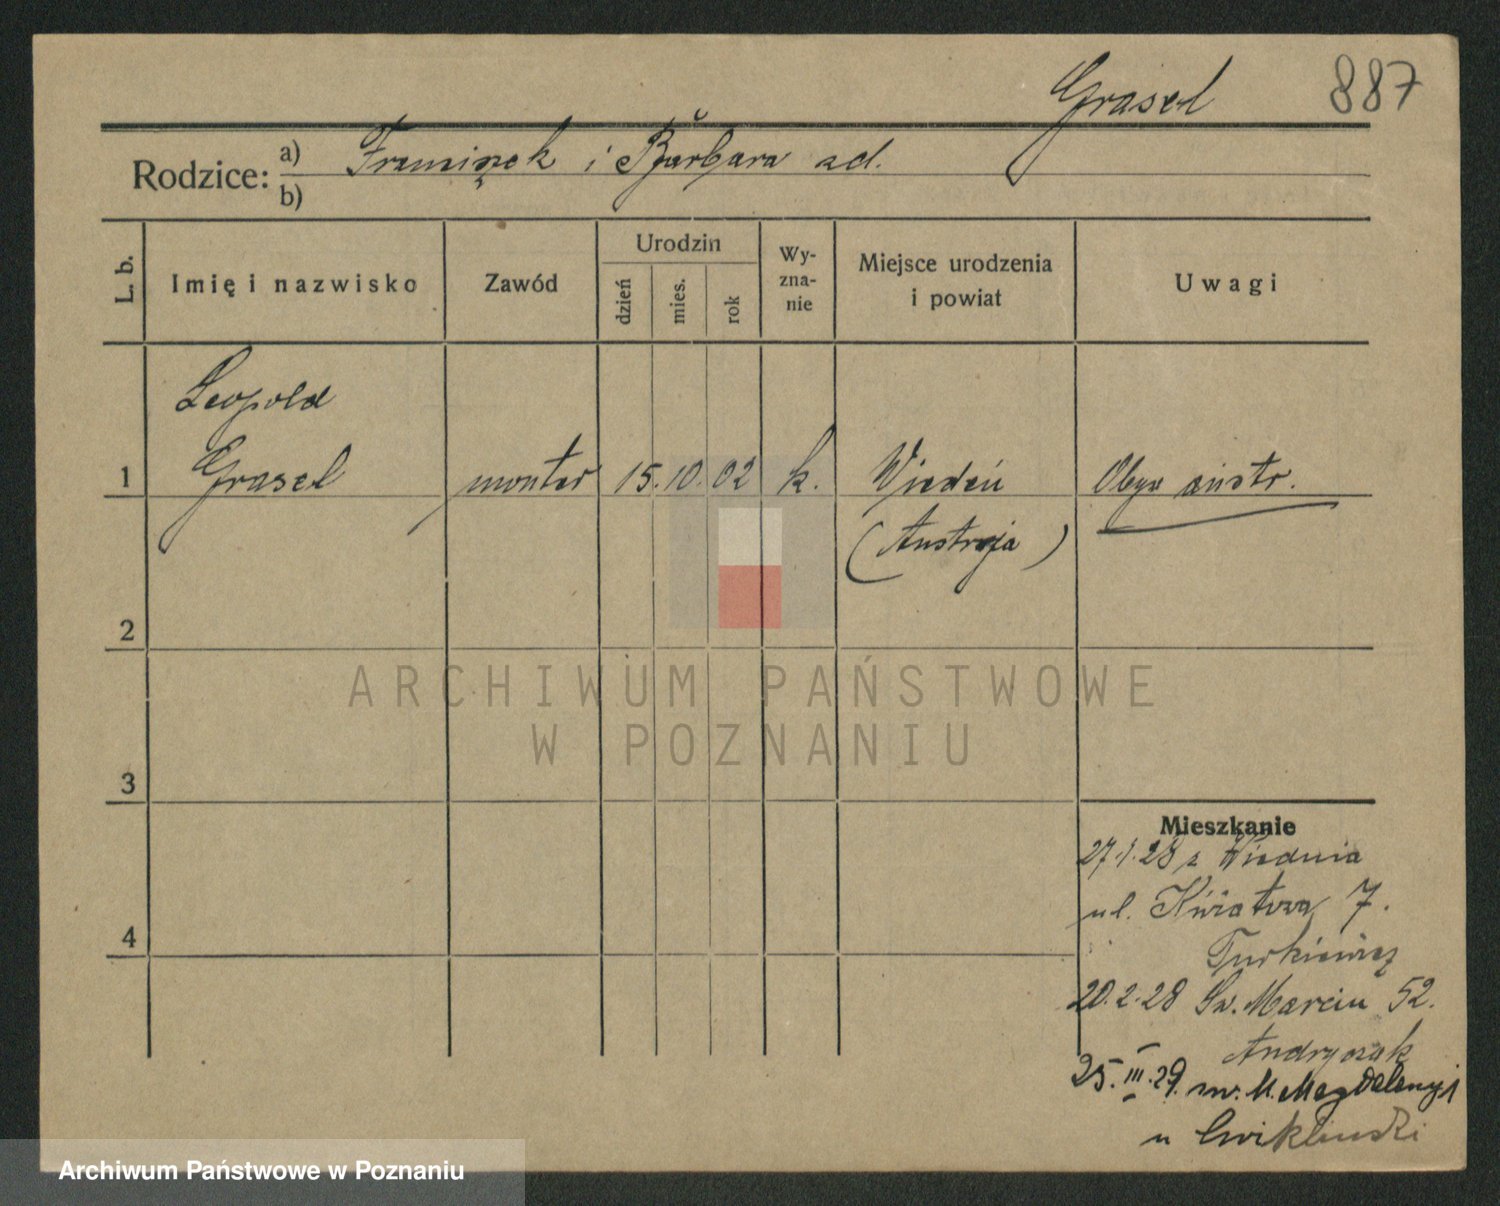 Grasel 887
Rodzice: a) Franciszek i Barbara zd.
b)
L. b. Imię i nazwisko Zawód Urodzin dzień mies. rok Wyzna-nie Miejsce urodzenia i powiat Uwagi
Leopold
1 Grasel monter 15. 10. 02 k. Wiedeń Obyw austr.
(Austrja)
2
ARCHIWUM PAŃSTWOWE
W POZNANIU
3
Mieszkanie
27.1.28 z Wiednia
ul. Kwiatowa 7.
4
Turkiewicz
20.2.28 Św. Marcin 52.
Andrzejak
25.III.29. M. Magdaleny 1
u Cwikliński
Archiwum Państwowe w Poznaniu